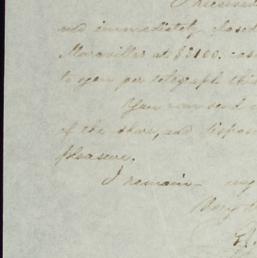 I received
and immediately closed
Maravillas at $2100. cas
to you per telegraph thi
You can send
of the above, and dispos
pleasure.
I remain - 
Very